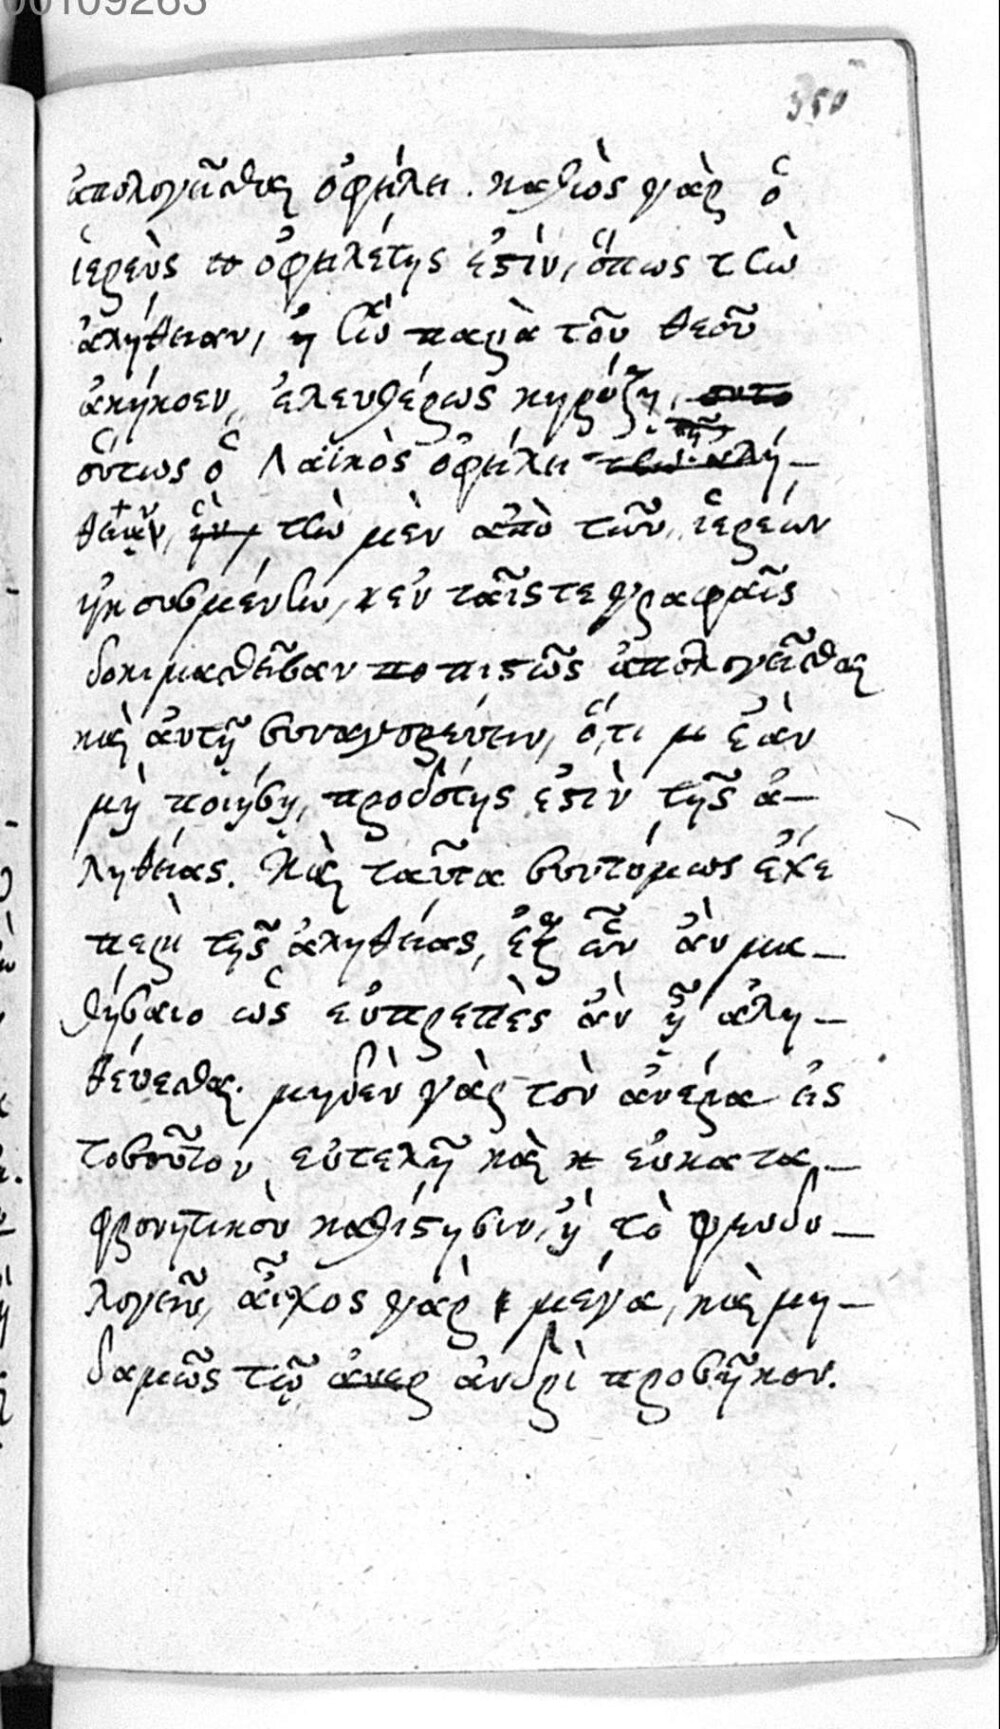 00109263
350
ἀπολογεῖσθαι ὀφείλει. καθὼς γὰρ ὁ
ἱερεὺς ὀφειλέτης ἐστὶν, ὅπως τὴν
ἀλήθειαν, ἣν παρὰ τοῦ θεοῦ
ἀκήκοεν, ἐλευθέρως κηρύξῃ, ουτο
οὕτως ὁ Λαϊκὸς ὀφείλει τὴν ἀλή-
θειαν, ἣν, τὴν μὲν ἀπὸ τῶν ἱερέων
ἠκουσμένην, κ ἐν ταῖς τε γραφαῖς
δοκιμασθεῖσαν πο πιστῶς ἀπολογεῖσθαι
καὶ αὐτῇ συναγορεύειν, ὅ,τι μ ἐὰν
μὴ ποιήσῃ, προδότης ἐστὶν τῆς ἀ-
ληθείας. Καὶ ταῦτα συντόμως ἔχε
περὶ τῆς ἀληθείας, ἐξ ὧν ἂν μα-
θήσαιο ὡς εὐπρεπὲς ἂν ᾖ ἀλη-
θεύεσθαι. μηδὲν γὰρ τὸν ἀνέρα εἰς
τοσοῦτον εὐτελῆ καὶ κ εὐκατα-
φρονητικὸν καθίστησιν, ἢ τὸ ψευδο-
λογεῖν, αἶσχος γὰρ μέγα, καὶ μη-
δαμῶς τῷ ἀνερ ἀνδρὶ προσῆκον.